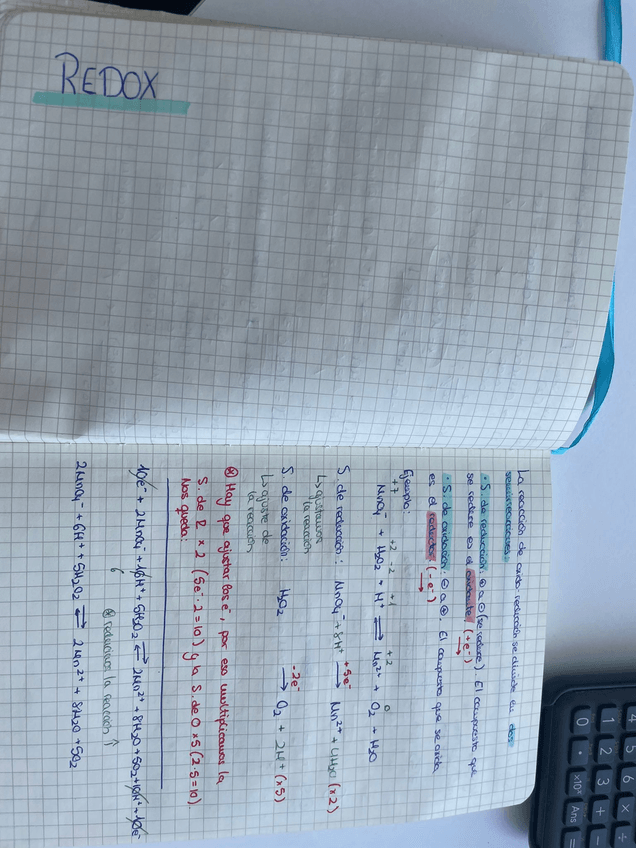 REDOX
La reacción de oxido reducción se divide en dos
semirreacciones.
· S. de reducción: ⊕ a ⊖ (se reduce). El compuesto que
se reduce es el oxidante (+e⁻)
→
· S. de oxidación: ⊖ a ⊕. El compuesto que se oxida
es el reductor (-e⁻)
→
Ejemplo:
+7 +2 -2 +1 +2 0
MnO₄⁻ + H₂O₂ + H⁺ ⇌ Mn²⁺ + O₂ + H₂O
S. de reducción: MnO₄⁻ + 8H⁺ +5e⁻ → Mn²⁺ + 4H₂O (x2)
↳ ajustamos
la reacción
S. de oxidación: H₂O₂ -2e⁻ → O₂ + 2H⁺ (x5)
↳ ajuste de
la reacción
⊗ Hay que ajustar los e⁻, por eso multiplicamos la
S. de R x 2 (5e⁻·2=10) y la S. de O x5 (2·5=10).
Nos queda:
10e⁻ + 2MnO₄⁻ + 16H⁺ + 5H₂O₂ ⇌ 2Mn²⁺ + 8H₂O + 5O₂ + 10H⁺ + 10e⁻
6
⊗ reducimos la reacción ↑
2MnO₄⁻ + 6H⁺ + 5H₂O₂ ⇌ 2Mn²⁺ + 8H₂O + 5O₂
4 5 6
1 2 3 +
0 · ×10ˣ Ans =